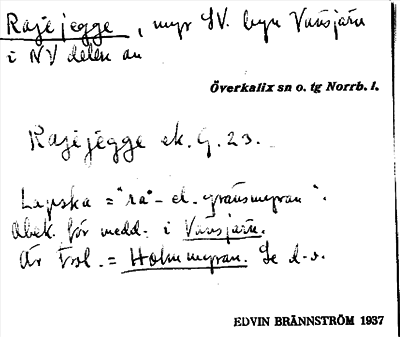 Rajejegge, myr SV. byn Vansjärv
i NV delen av
Överkalix sn o. tg Norrb. l.
Rajejegge ek. G. 23.
Lapska = "rå"- el. gränsmyran".
Obek. för medd. i Vansjärv.
Är trol. = Holmmyran. Se d. o.
EDVIN BRÄNNSTRÖM 1937